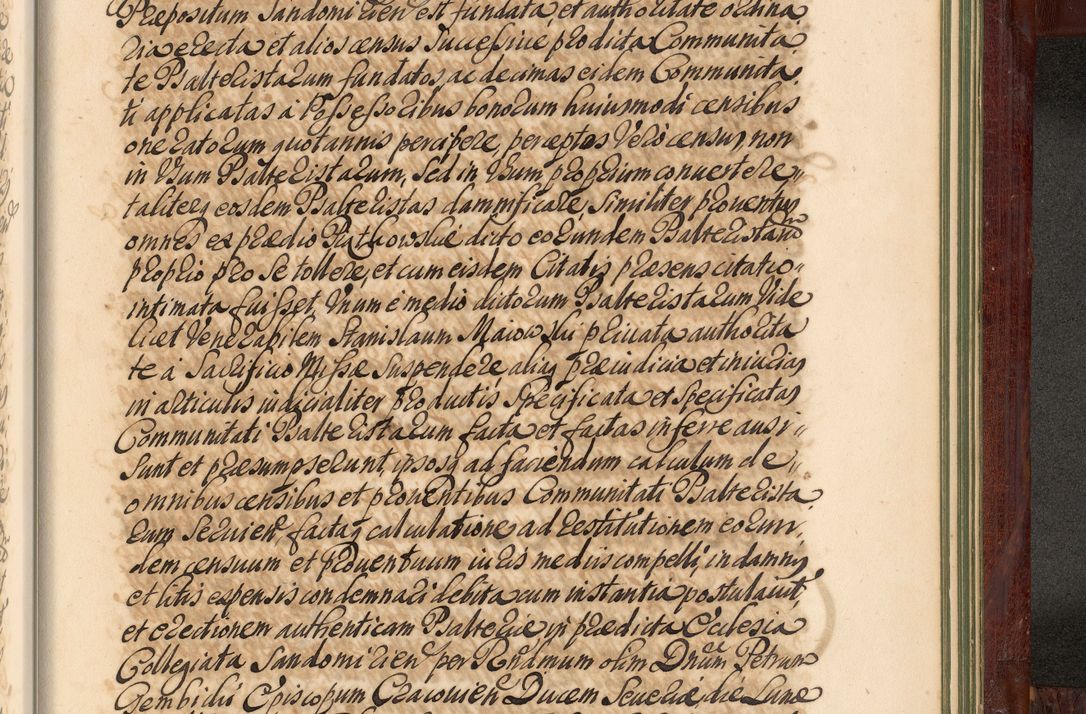 Præpositum Sandomirien est fundata, et authoritate ordina
ria erecta et alios census successive pro dicta Communita
te Psalteristarum fundatos ac decimas eidem Communita
ti applicatas à Possessoribus bonorum huiusmodi censibus
oneratorum quotannis percipere, perceptos Vero census non
in Usum Psalteristarum, Sed in Usum proprium convertere,
taliterq eosdem Psalteristas damnificare, Similiter proventus
omnes ex prædio dicto eorundem Psalteristarum
proprio pro Se tollere, et cum eisdem Citatis præsens citatio
intimata fuisset, Unum è medio dictorum Psalteristarum Vide
licet Venerabilem Stanislaum Maiowski privata authorita
te à Sacrificio Missæ Suspendere aliaq præiudicia et iniurias
in articulis iudicialiter productis Specificata et Specificatas
Communitati Psalteristarum facta et factas inferre ausi
Sunt et præsumpserunt, ipsosq ad faciendum calculum de
omnibus censibus et proventibus Communitati Psalterista
rum Servien, factaq calculatione ad restitutionem eorun
dem censuum et proventuum iuris mediis compelli, in damnis
et litis expensis condemnari debita cum instantia postulavit,
et erectionem authenticam Psalteriæ in prædicta Ecclesia
Collegiata Sandomirien per Rndmum olim Dnum Petrum
Gembicki Episcopum Cracovien Ducem Severiæ die Lunæ